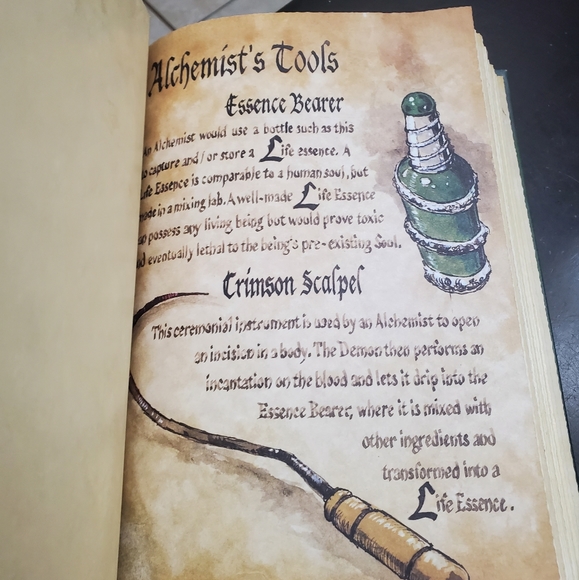 Alchemist's Tools
Essence Bearer
An Alchemist would use a bottle such as this
to capture and / or store a Life essence. A
Life Essence is comparable to a human soul, but
made in a mixing lab. A well-made Life Essence
can possess any living being but would prove toxic
and eventually lethal to the being's pre-existing Soul.
Crimson Scalpel
This ceremonial instrument is used by an Alchemist to open
an incision in a body. The Demon then performs an
incantation on the blood and lets it drip into the
Essence Bearer, where it is mixed with
other ingredients and
transformed into a
Life Essence.